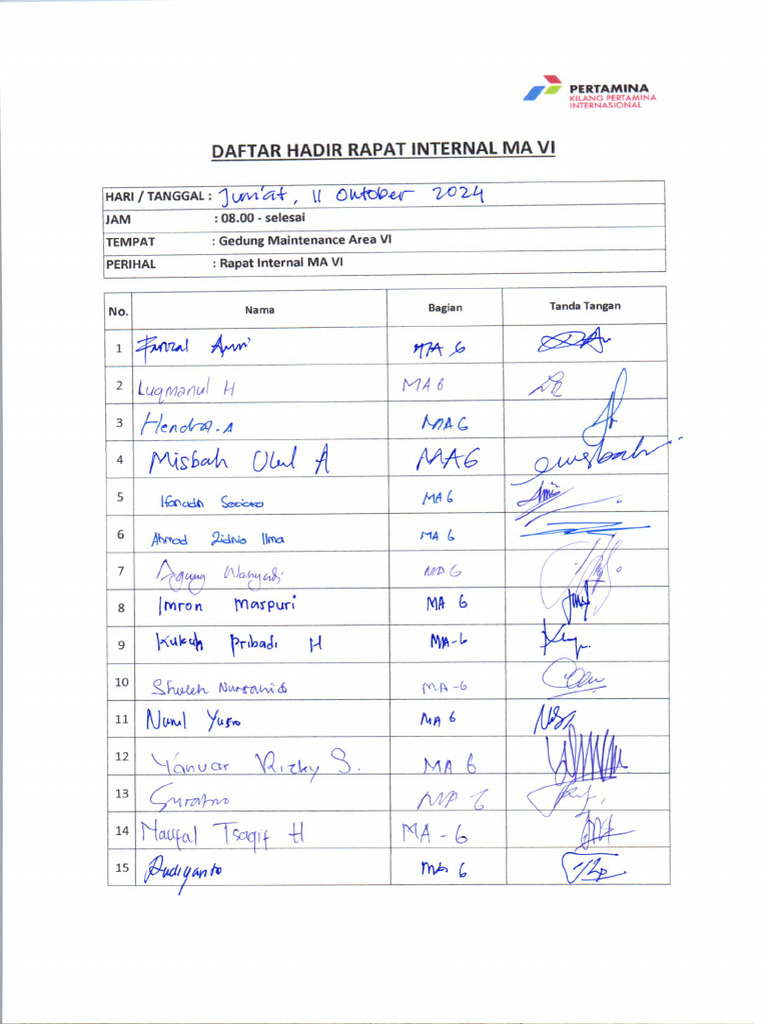 PERTAMINA
KILANG PERTAMINA
INTERNASIONAL
DAFTAR HADIR RAPAT INTERNAL MA VI
HARI / TANGGAL : Jum'at, 11 Oktober 2024
JAM : 08.00 - selesai
TEMPAT : Gedung Maintenance Area VI
PERIHAL : Rapat Internal MA VI
No. Nama Bagian Tanda Tangan
1 MA 6
2 Luqmanul H MA 6
3 Hendra.A MA 6
4 Misbah Ulul A MA6
5 MA 6
6 Ahmad Zidnie Ilma MA 6
7 Agung Wahyudi MA 6
8 Imron Maspuri MA 6
9 Kukuh Pribadi H MA-6
10 MA-6
11 Nurul MA 6
12 Yanuar Rizky S. MA 6
13 Suratno MA 6
14 Naufal Tsaqif H MA-6
15 Rudiyanto MA 6